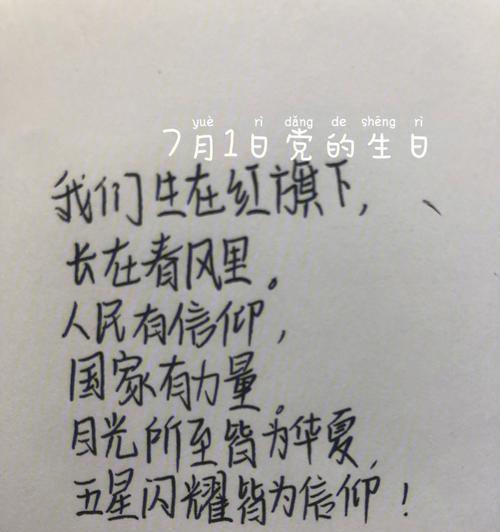 yuè rì dǎng de shēng rì
7月1日党的生日
我们生在红旗下，
长在春风里。
人民有信仰，
国家有力量。
目光所至皆为华夏，
五星闪耀皆为信仰！